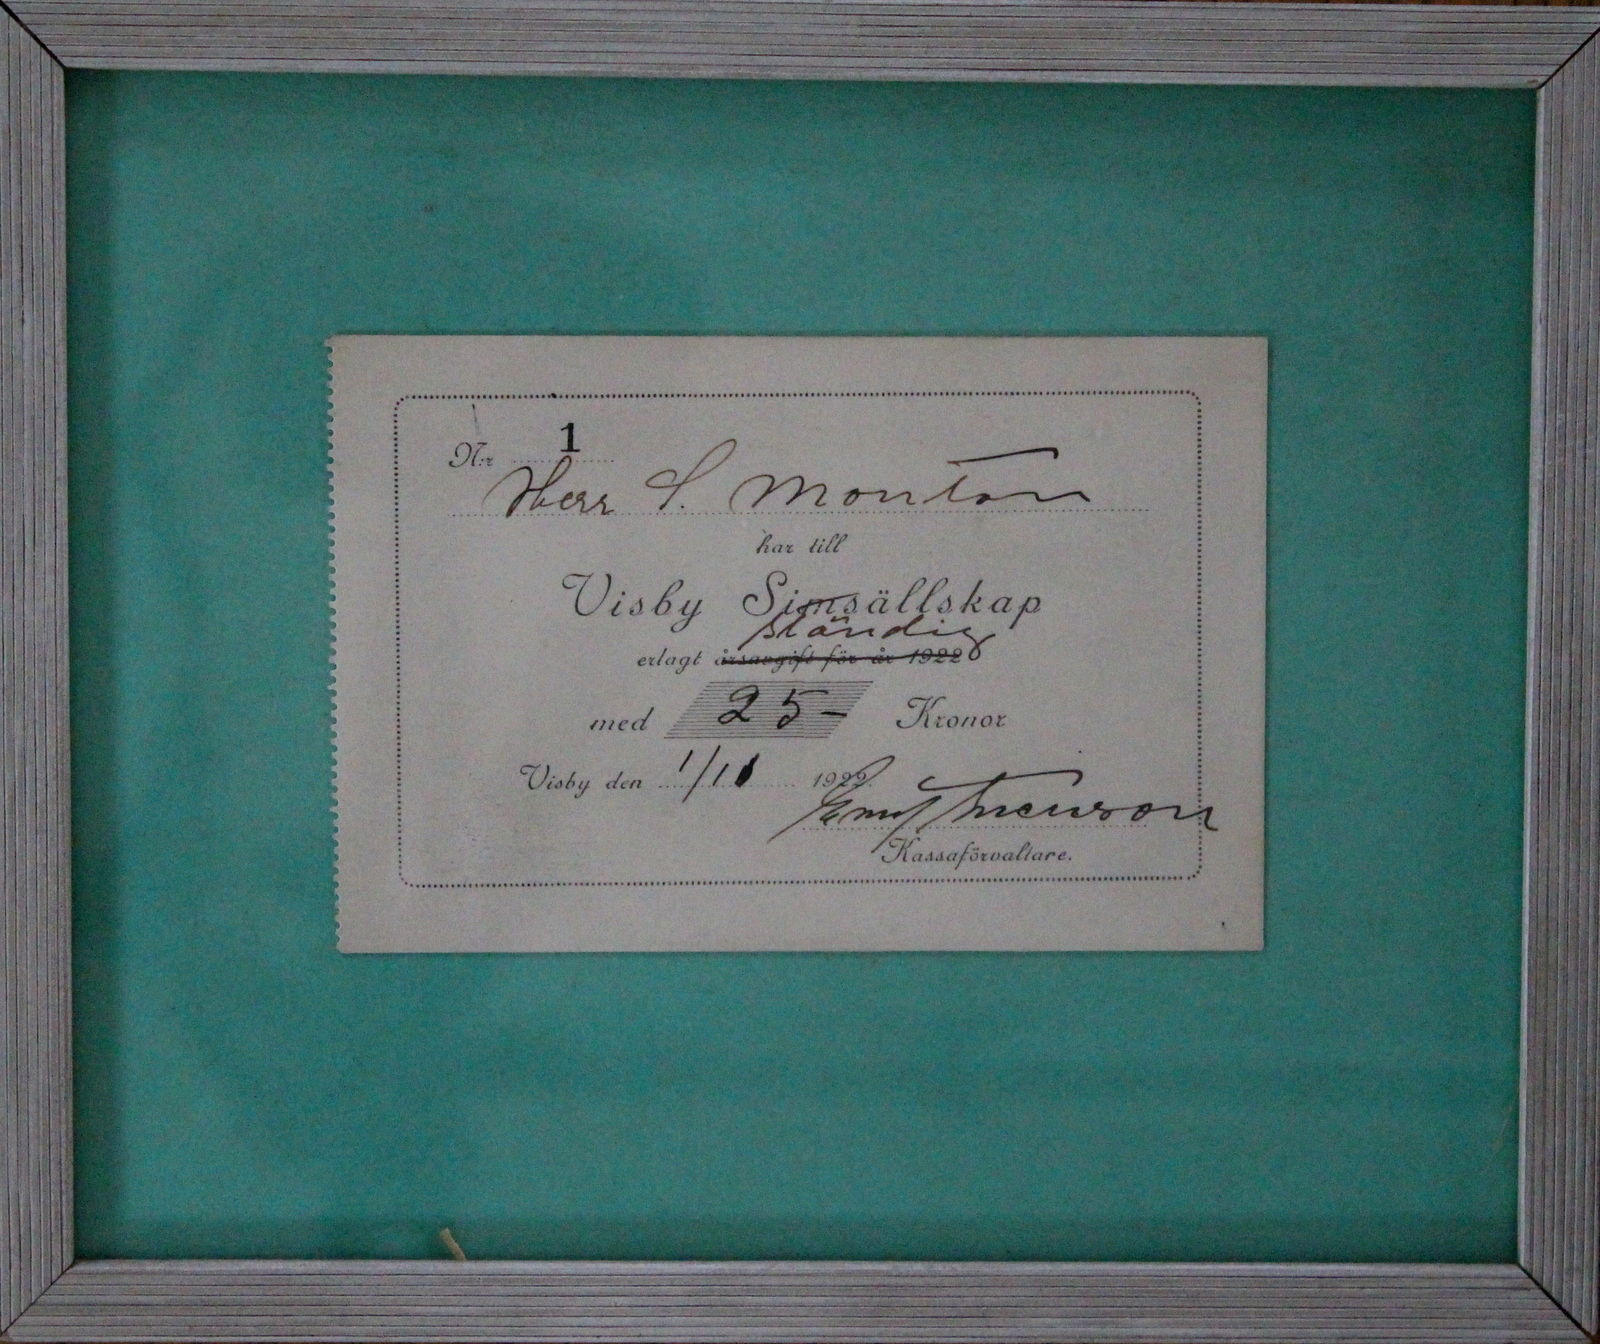 N:r 1
Herr S. Monton
har till
Visby Simsällskap
ständig
erlagt årsavgift för år 1922
med 25- Kronor
Visby den 1/11 1922.
Kassaförvaltare.